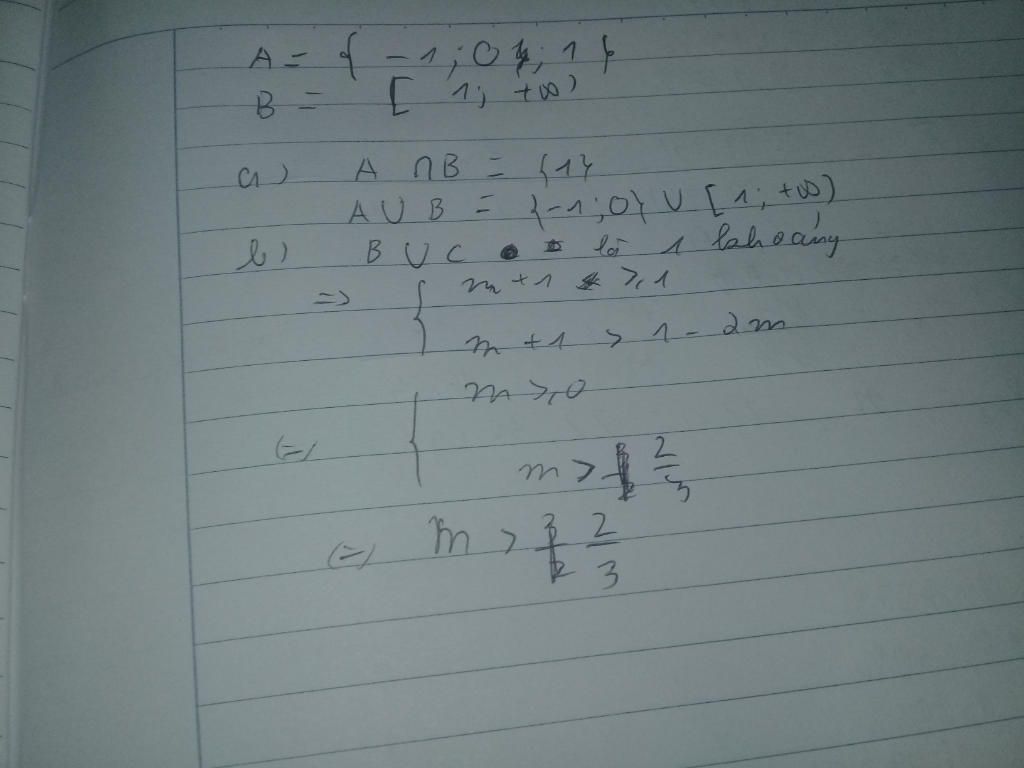 A = { -1 ; 0 ; 1 }
B = [ 1 ; +∞)
a) A ∩ B = {1}
A ∪ B = {-1 ; 0} ∪ [1 ; +∞)
b) B ∪ C là 1 khoảng
=> { m + 1 ⩾ 1
m + 1 > 1 - 2m
(=) { m ⩾ 0
m > 2/3
(=) m > 2/3